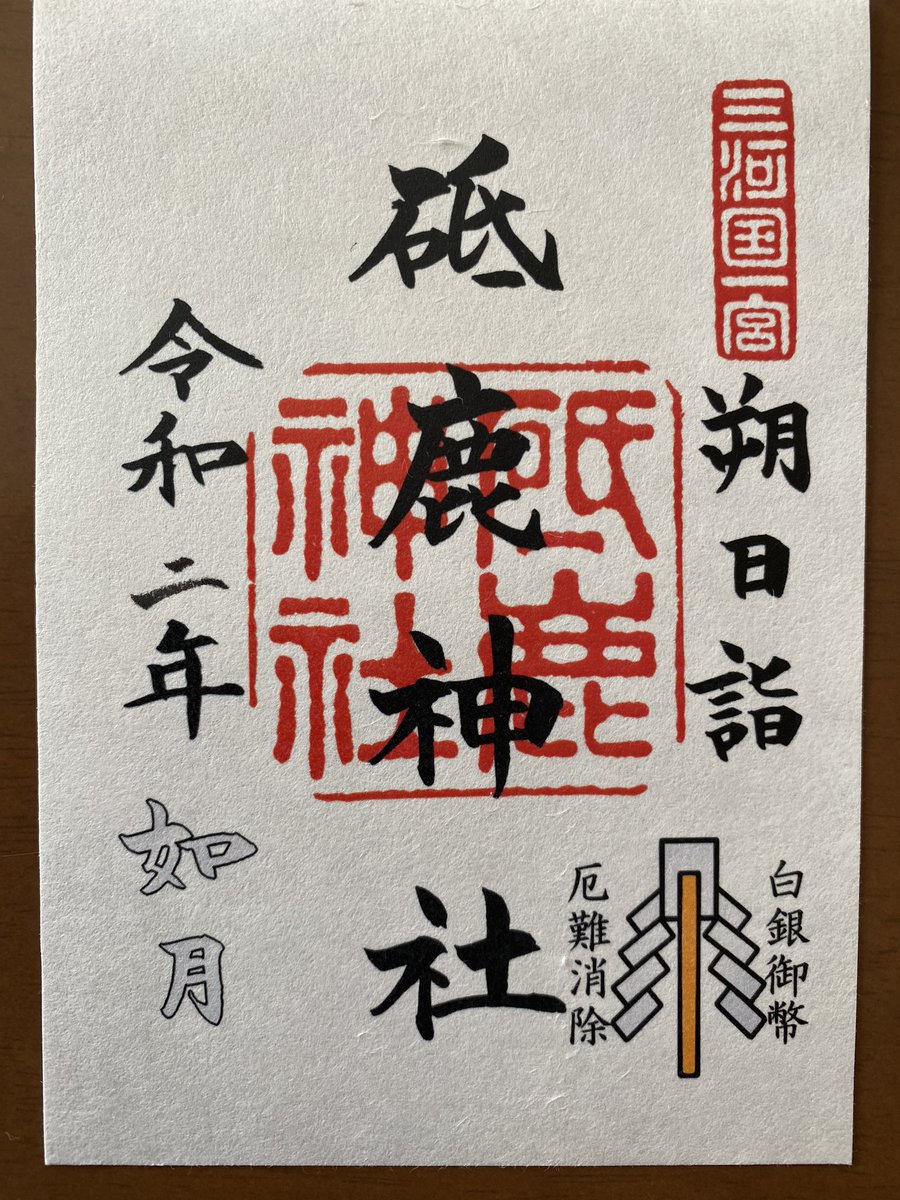 三河国一宮
朔日詣
白銀御幣
厄難消除
砥鹿神社
砥鹿神社
令和二年
如月